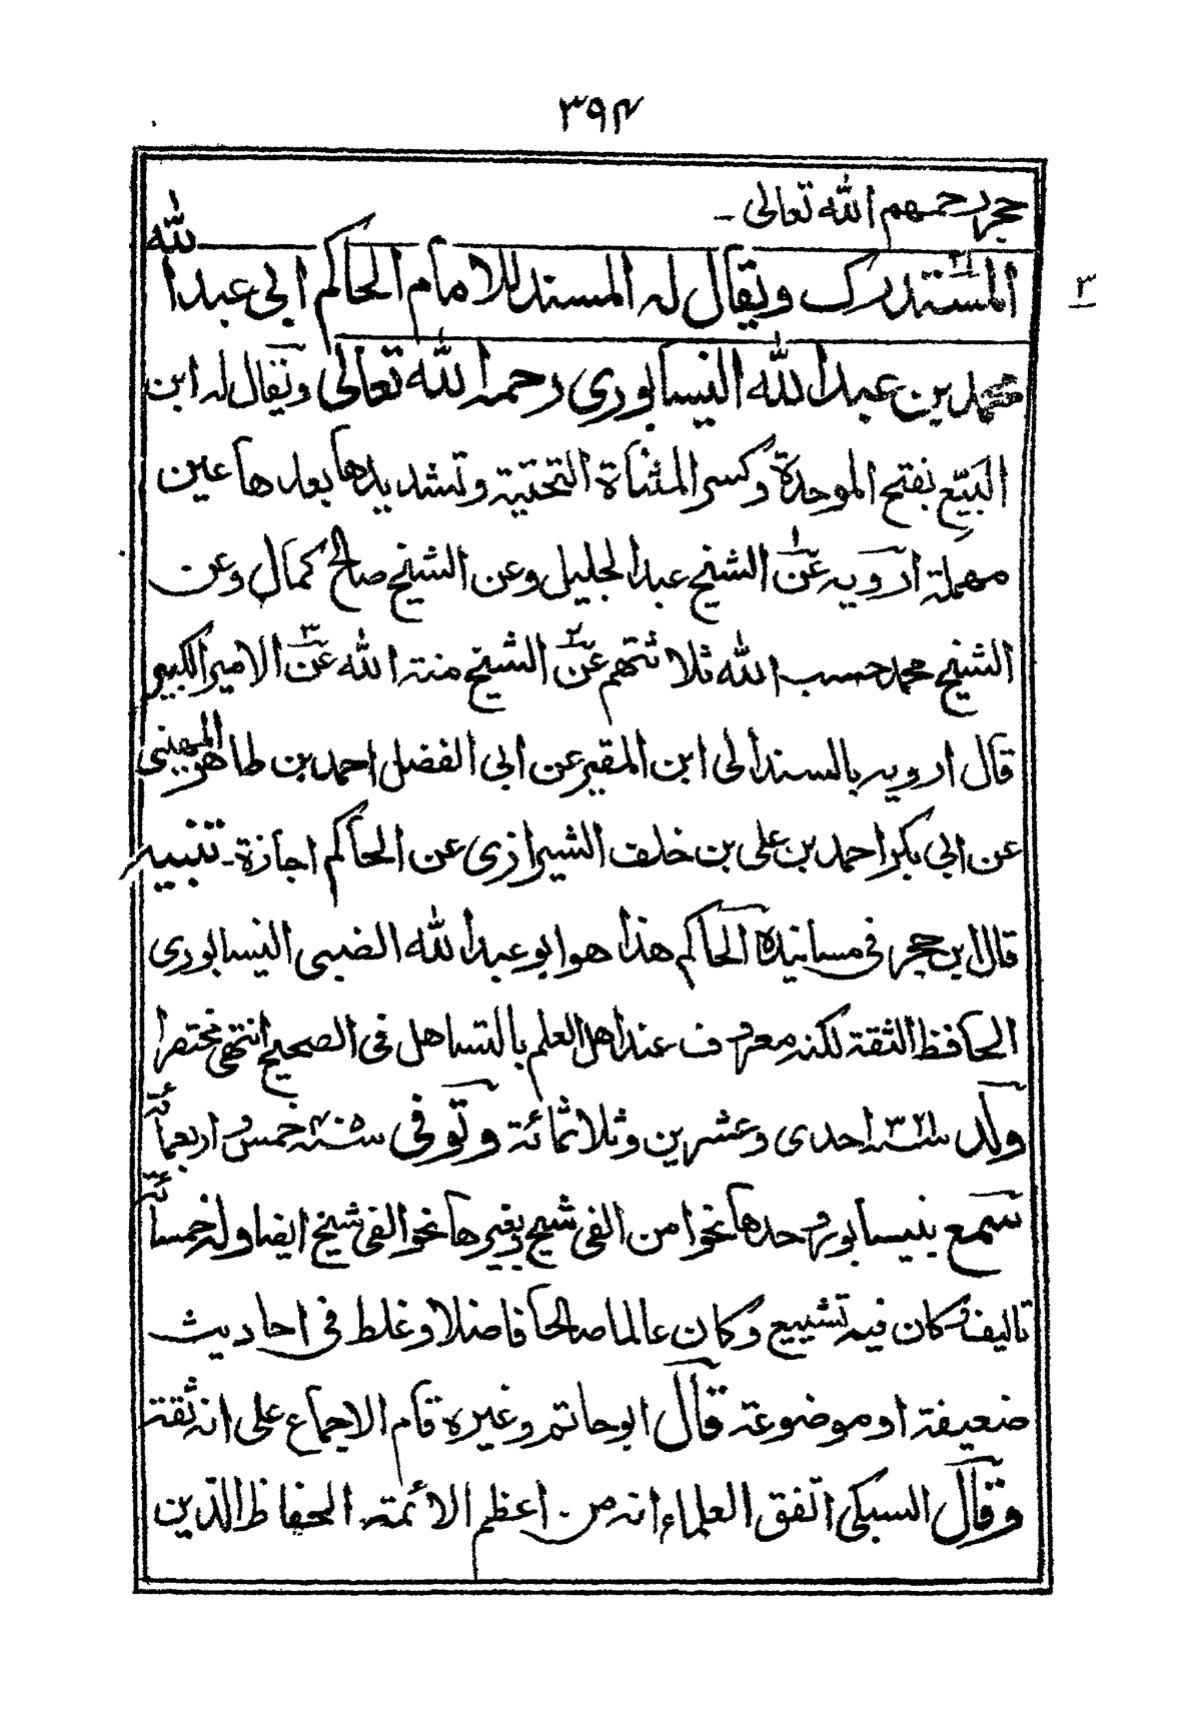 ٣٩٤
حجر رحمهم الله تعالى -
٣
المستدرك ويقال له المسند للامام الحاكم ابي عبد الله
محمد بن عبد الله النيسابوري رحمه الله تعالى ويقال له ابن
البيّع بفتح الموحدة وكسر المثناة التحتية وتشديدها بعدها عين
مهملة ارويه عن الشيخ عبد الجليل وعن الشيخ صالح كمال وعن
الشيخ محمد حسب الله ثلاثتهم عن الشيخ منة الله عن الامير الكبير
قال ارويه بالسند الى ابن المقير عن ابي الفضل احمد بن طاهر الميهيني
عن ابي بكر احمد بن علي بن خلف الشيرازي عن الحاكم اجازة - تنبيه
قال ابن حجر في مسانيده الحاكم هذا هو ابو عبد الله الضبي النيسابوري
الحافظ الثقة لكنه معروف عند اهل العلم بالتساهل في الصحيح انتهى مختصرا
ولد سنة ٣٢١ احدى وعشرين وثلاثمائة وتوفي سنة ٤٠٥ خمس واربعمائة
سمع بنيسابور وحدها نحوا من الفي شيخ وبغيرها نحو الفي شيخ ايضا وله خمسمائة
تاليف وكان فيه تشييع وكان عالما صالحا فاضلا وغلط في احاديث
ضعيفة او موضوعة قال ابو حاتم وغيره قام الاجماع على انه ثقة
وقال السبكي اتفق العلماء انه من اعظم الائمة الحفاظ الذين